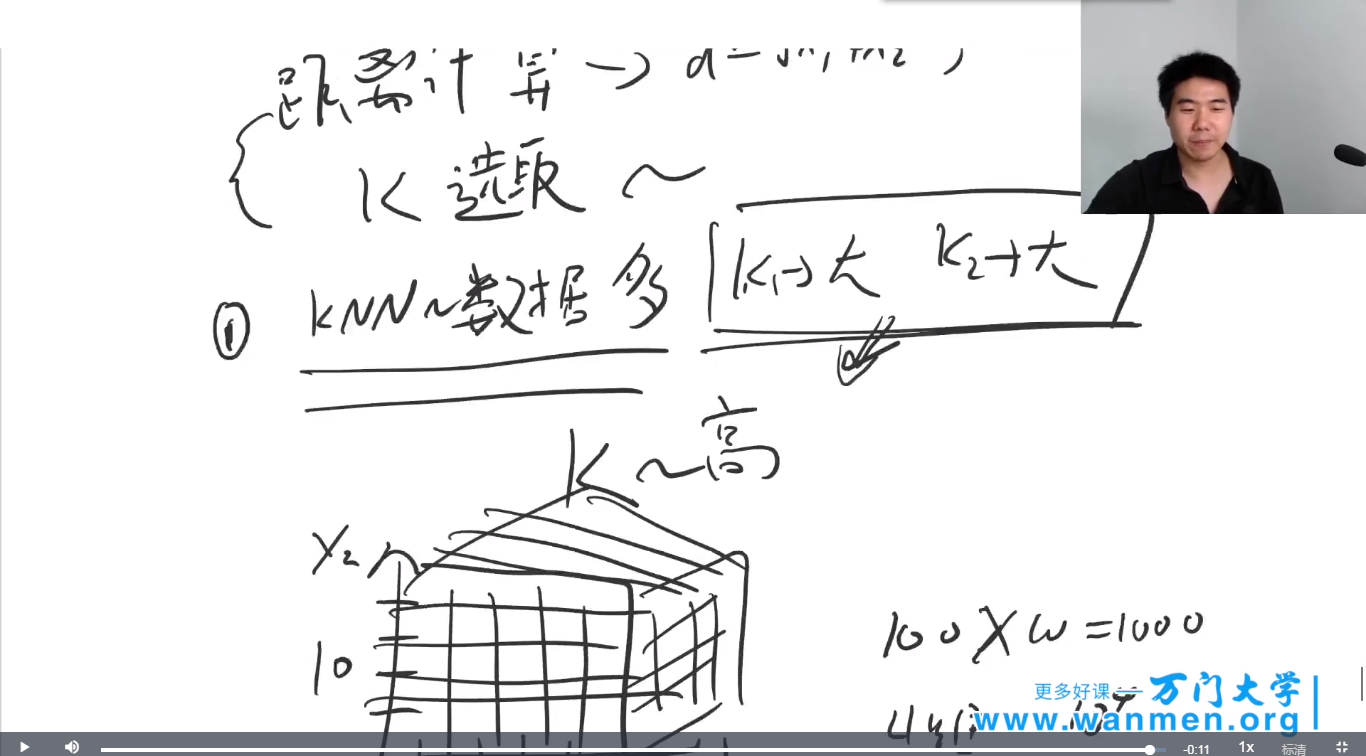 距离计算 →
K 选取 ~
① KNN ~ 数据多 K₁→大 K₂→大
K ~ 高
X₂
10
100 X 10 = 1000
更多好课 — 万门大学
www.wanmen.org
-0:11 1x 标清